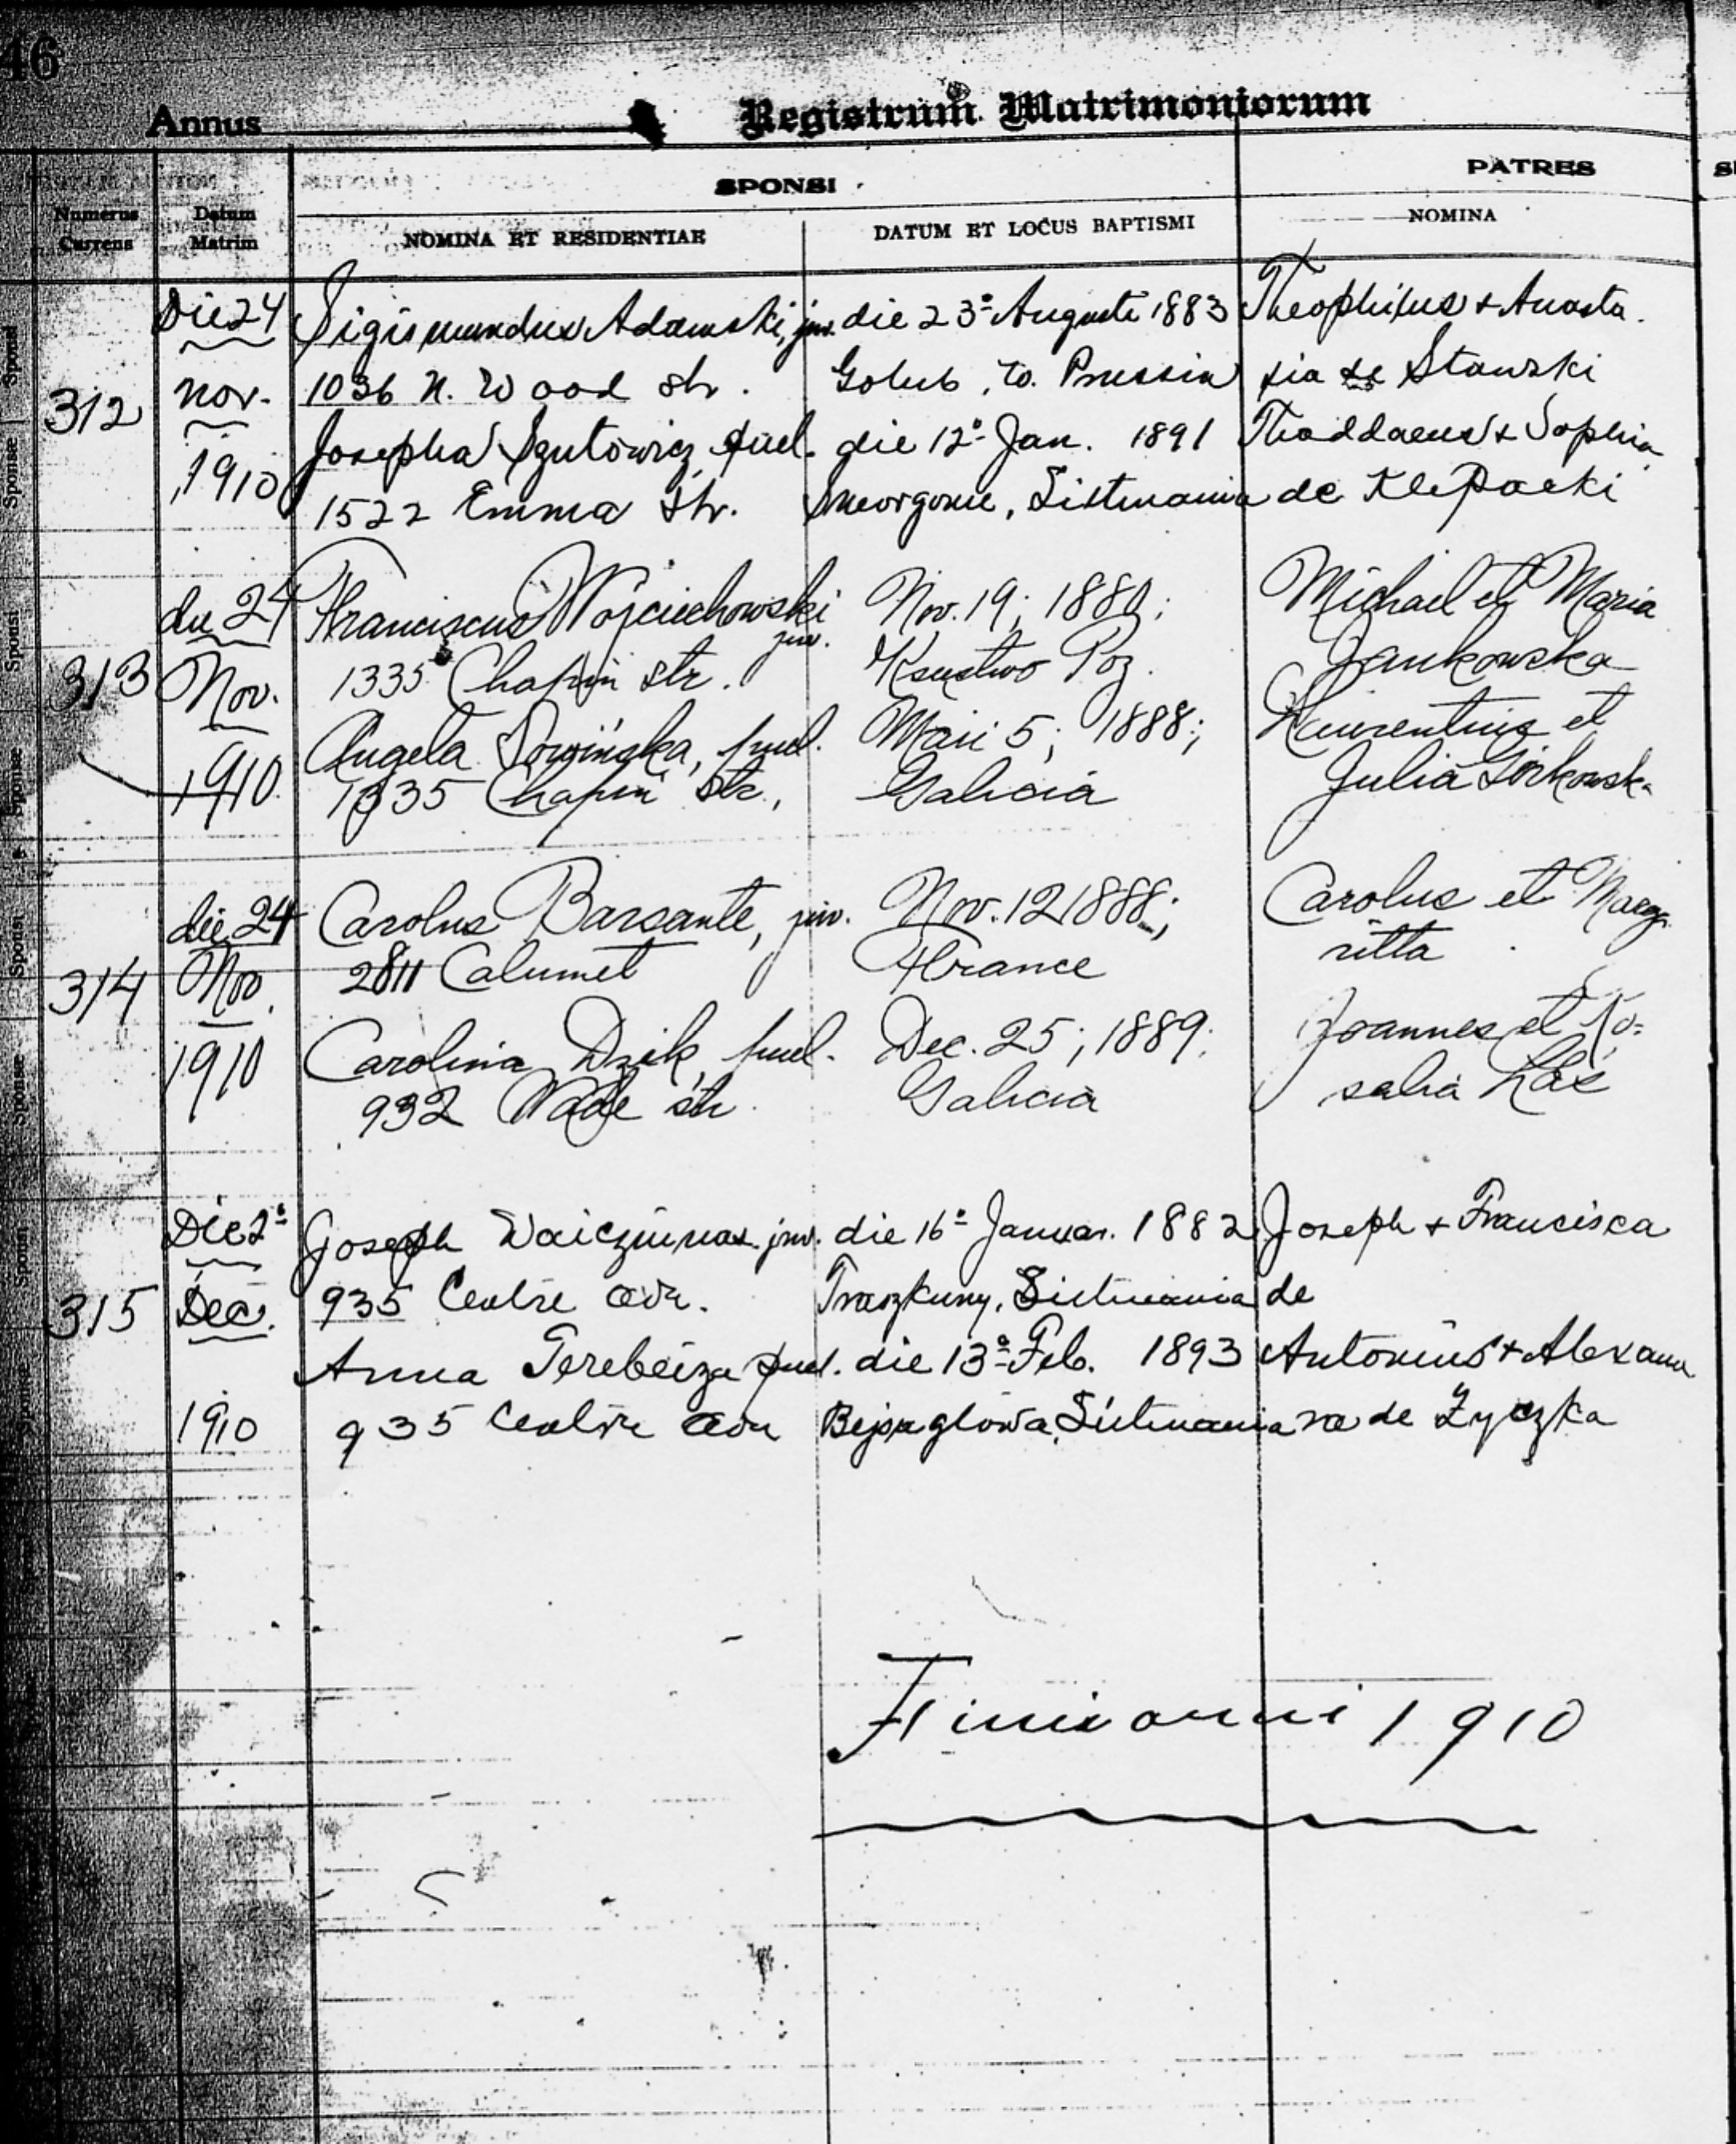 46
Annus
Registrum Matrimoniorum
SPONSI
PATRES
Numerus Currens
Datum Matrim
NOMINA ET RESIDENTIAE
DATUM ET LOCUS BAPTISMI
NOMINA
312
Die 24
Nov.
1910
Sigismundus Adamski, juv. die 23ª Augusti 1883 Theophilus + Anasta-
1036 N. Wood str. Golub, to. Prussia sia de Stawski
Josepha Szutowicz, puel. die 12ª Jan. 1891 Thaddaeus + Sophia
1522 Emma Str. Smorgonie, Lituania de Klepacki
313
die 24
Nov.
1910
Franciscus Wojciechowski juv. Nov. 19; 1880; Michael et Maria
1335 Chapin str. Ksiestwo Poz. Jankowska
Angela puel. Maii 5; 1888; Laurentius et
1335 Chapin Str., Galicia Julia Górkowsk-
314
die 24
Nov.
1910
Carolus Barsante, juv. Nov. 12 1888; Carolus et Marga
2811 Calumet France ritta
Carolina Dzik, puel. Dec. 25; 1889; Joannes et Ro=
932 Wade str. Galicia salia Łaś
315
Die 2ª
Dec.
1910
Joseph Waiczunas juv. die 16ª Januar. 1882 Joseph + Francisca
935 Centre ave. Traszkuny, Lituania de
Anna Terebeiza puel. die 13ª Feb. 1893 Antonius + Alexan
935 Centre ave Bejsagłowa, Lituania ra de Życzka
Finis anni 1910